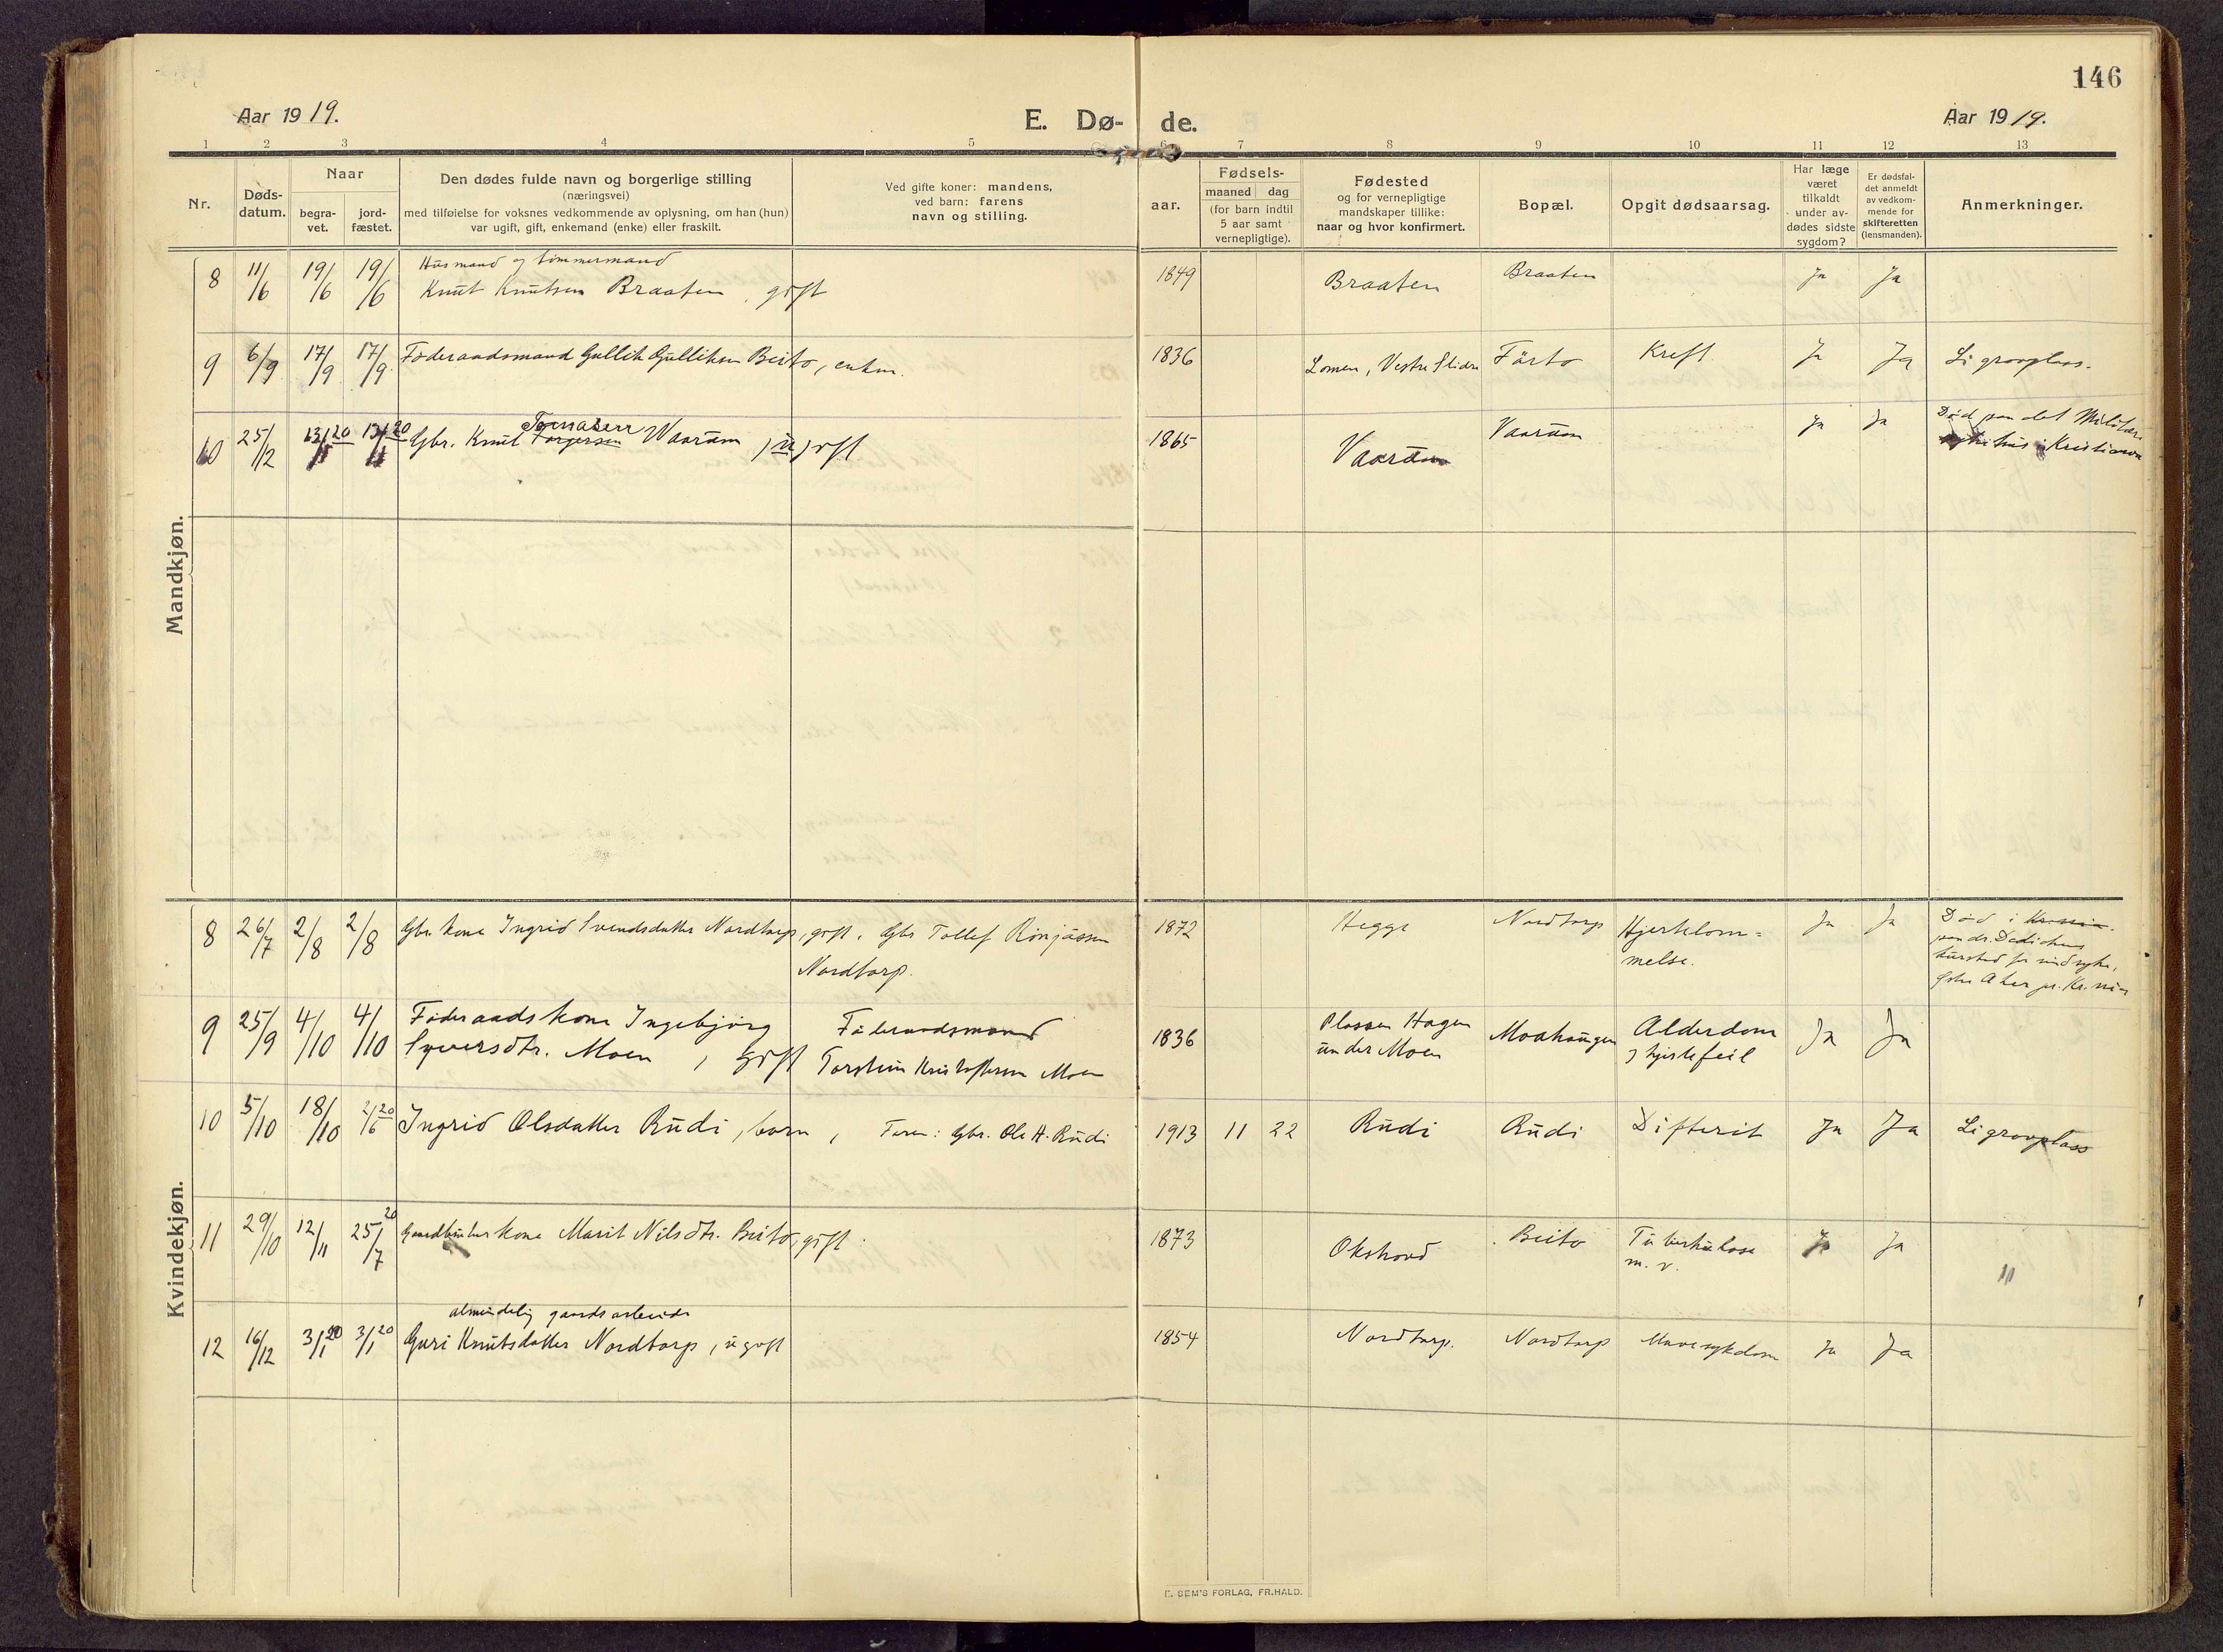 146
Aar 1919.
E. Dø-de.
Aar 1919.
1 2 3 4 5 6 7 8 9 10 11 12 13
Nr.
Døds-
datum.
Naar
begra-
vet.
jord-
fæstet.
Den dødes fulde navn og borgerlige stilling
(næringsvei)
med tilføielse for voksnes vedkommende av oplysning, om han (hun)
var ugift, gift, enkemand (enke) eller fraskilt.
Ved gifte koner: mandens,
ved barn: farens
navn og stilling.
Fødsels-
aar.
maaned dag
(for barn indtil
5 aar samt
vernepligtige).
Fødested
og for vernepligtige
mandskaper tillike:
naar og hvor konfirmert.
Bopæl.
Opgit dødsaarsag.
Har læge
været
tilkaldt
under av-
dødes sidste
sygdom?
Er dødsfal-
det anmeldt
av vedkom-
mende for
skifteretten
(lensmanden).
Anmerkninger.
Mandkjøn.
Husmand og tømmermand
8 11/6 19/6 19/6 Knut Knutsen Braaten, gift 1849 Braaten Braaten Ja Ja
9 6/9 17/9 17/9 Føderaadsmand Gullik Gulliksen Beito, enkm. 1836 Lomen, Vestre Slidre Førto Kreft Ja Ja Li gravplass.
10 25/12 13/1 20 13/1 20 Gbr. Knut Torgersen Waarum, ugift 1865 Vaarum Vaarum Ja Ja Død paa det Militære
sykehus i Kristiania
Kvindekjøn.
8 26/7 2/8 2/8 Gbr. kone Ingrid Svendsdatter Nordtorp, gift. Gbr Tollef
Nordtorp.
1872 Hegge Nordtorp Hjertelam-
melse. Ja Ja Død i
paa dr. Dedichens
kursted for sindssyke,
Aker pr. Kr.nia
9 25/9 4/10 4/10 Føderaadskone Ingebjørg
Syversdtr. Moen, Gift
Føderaadsmand
Torstein Kristoffersen Moen
1836 Plassen Hagen
under Moen Moahaugen Alderdom
og hjertefeil Ja Ja
10 5/10 18/10 2/6 20 Ingrid Olsdatter Rudi, barn, Faren: Gbr. Ole H. Rudi 1913 11 22 Rudi Rudi Difterit Ja Ja Li gravplass
11 29/10 12/11 25/7 20 Gaardbrukerkone Marit Nilsdtr. Beito, gift. 1873 Okshovd Beito Tuberkulose
m. v. Ja Ja "
almindelig gaardsarbeide
12 16/12 3/1 20 3/1 20 Guri Knutsdatter Nordtorp, ugift 1854 Nordtorp. Nordtorp Mavesykdom Ja Ja
E. SEM'S FORLAG, FR.HALD.